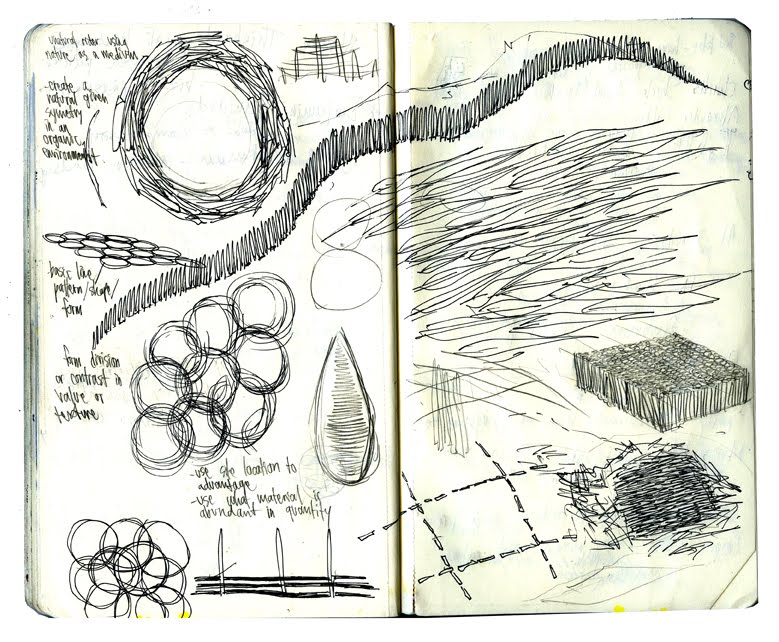 nature as a medium
-create a
natural given
symetry
in an
organic
environment.
basic line
pattern/shape/
form
form division
or contrast in
value or
texture
-use site location to
advantage
-use what material is
abundant in quantity
N
S